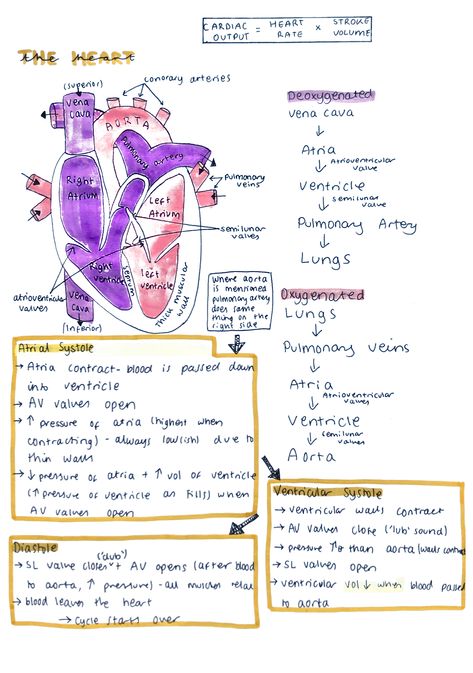 CARDIAC OUTPUT = HEART RATE × STROKE VOLUME
THE HEART
the heart
(superior)
conorary arteries
Vena
cava
AORTA
Pulmonary artery
pulmonary
veins
Right
Atrium
Left
Atrium
semilunar
valves
Right
ventricle
septum
left
ventricle
Thick muscular
wall
atrioventricular
valves
Vena
cava
(Inferior)
Where aorta
is mentioned
pulmonary artery
does same
thing on the
right side
Deoxygenated
Vena cava
↓
Atria
↓ Atrioventricular
valve
Ventricle
↓ semilunar
valve
Pulmonary Artery
↓
Lungs
Oxygenated
Lungs
↓
Pulmonary veins
↓
Atria
↓ Atrioventricular
valves
Ventricle
↓ semilunar
valves
Aorta
Atrial Systole
→ Atria contract - blood is passed down
into ventricle
→ AV valves open
→ ↑ pressure of atria (highest when
contracting) - always low(ish) due to
thin walls
→ ↓ pressure of atria + ↑ vol of ventricle
(↑ pressure of ventricle as fills) when
AV valves open
Ventricular Systole
→ ventricular walls contract
→ AV valves close ('lub' sound)
→ pressure ↑ than aorta (walls contract
→ SL valves open
→ ventricular vol ↓ when blood passed
to aorta
Diastole
('dub')
→ SL valve closes + AV opens (after blood
to aorta, ↑ pressure) - all muscles relax
→ blood leaves the heart
→ cycle starts over